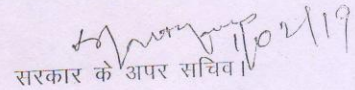 1/02/19
सरकार के अपर सचिव।